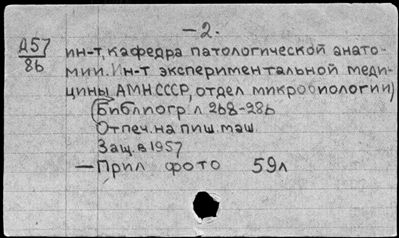 –2.
А57
8b
ин-т, кафедра патологической анато-
мии. Ин-т экспериментальной меди-
цины АМН СССР, отдел микробиологии)
(Библиогр л 268-286
Отпеч. на пиш. маш
Защ. в 1957
—Прил фото 59л